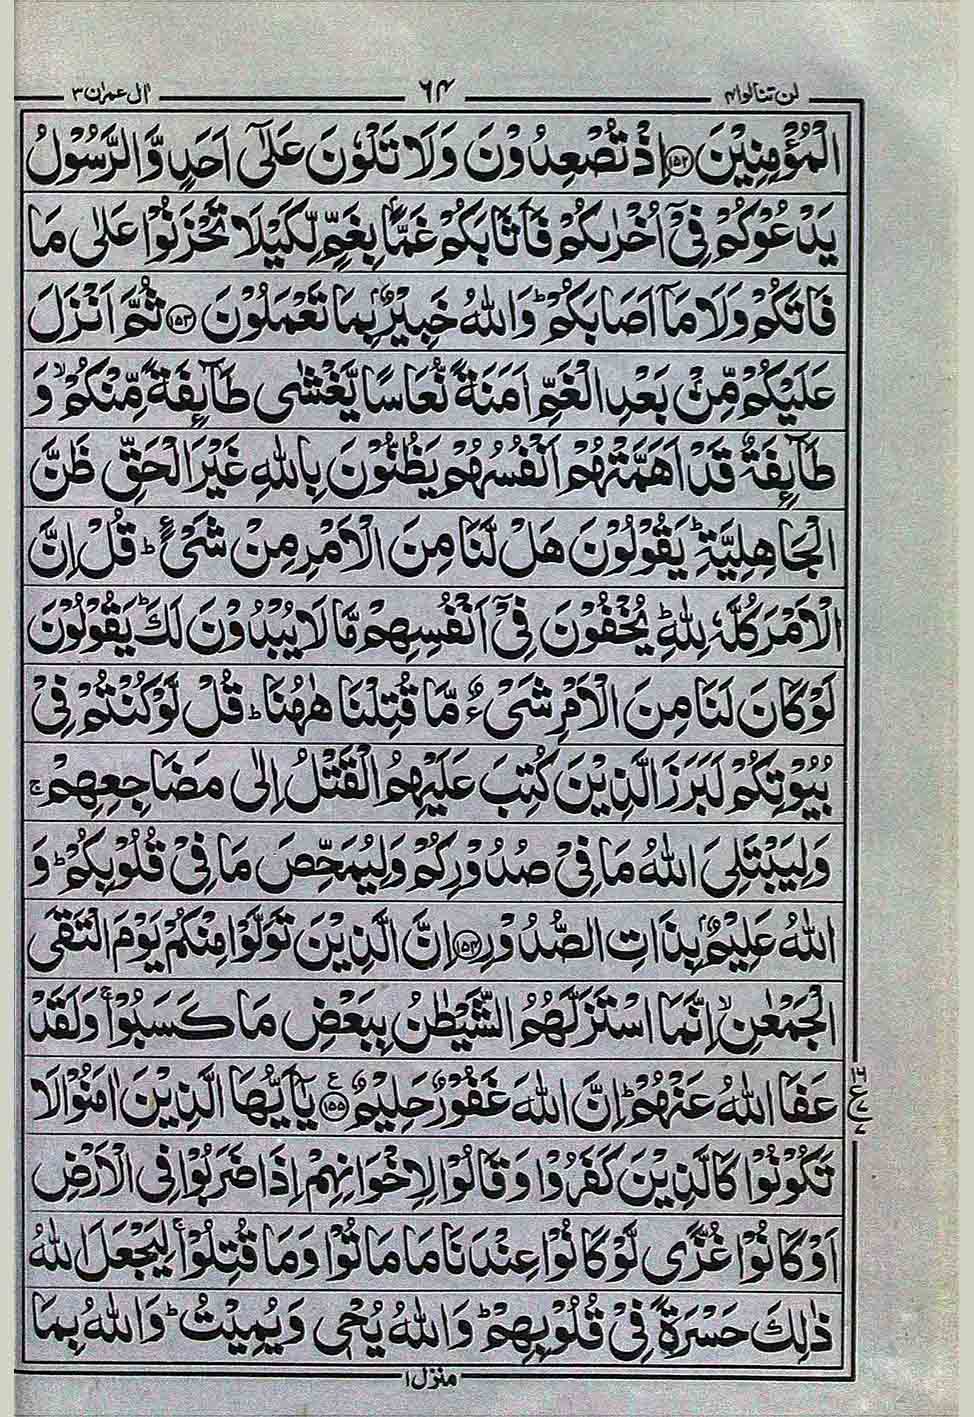 لن تنالوا۴ ۶۴ اٰل عمرٰن۳
الْمُؤْمِنِيْنَ ﴿۱۵۲﴾ اِذْ تُصْعِدُوْنَ وَلَا تَلْوٗنَ عَلٰٓى اَحَدٍ وَّالرَّسُوْلُ
يَدْعُوْكُمْ فِيْٓ اُخْرٰىكُمْ فَاَثَابَكُمْ غَمًّۢا بِغَمٍّ لِّكَيْلَا تَحْزَنُوْا عَلٰى مَا
فَاتَكُمْ وَلَا مَآ اَصَابَكُمْ ؕ وَاللّٰهُ خَبِيْرٌۢ بِمَا تَعْمَلُوْنَ ﴿۱۵۳﴾ ثُمَّ اَنْزَلَ
عَلَيْكُمْ مِّنْۢ بَعْدِ الْغَمِّ اَمَنَةً نُّعَاسًا يَّغْشٰى طَآىِٕفَةً مِّنْكُمْ ۙ وَ
طَآىِٕفَةٌ قَدْ اَهَمَّتْهُمْ اَنْفُسُهُمْ يَظُنُّوْنَ بِاللّٰهِ غَيْرَ الْحَقِّ ظَنَّ
الْجَاهِلِيَّةِ ؕ يَقُوْلُوْنَ هَلْ لَّنَا مِنَ الْاَمْرِ مِنْ شَيْءٍ ؕ قُلْ اِنَّ
الْاَمْرَ كُلَّهٗ لِلّٰهِ ؕ يُخْفُوْنَ فِيْٓ اَنْفُسِهِمْ مَّا لَا يُبْدُوْنَ لَكَ ؕ يَقُوْلُوْنَ
لَوْ كَانَ لَنَا مِنَ الْاَمْرِ شَيْءٌ مَّا قُتِلْنَا هٰهُنَا ؕ قُلْ لَّوْ كُنْتُمْ فِيْ
بُيُوْتِكُمْ لَبَرَزَ الَّذِيْنَ كُتِبَ عَلَيْهِمُ الْقَتْلُ اِلٰى مَضَاجِعِهِمْ ۚ
وَلِيَبْتَلِيَ اللّٰهُ مَا فِيْ صُدُوْرِكُمْ وَلِيُمَحِّصَ مَا فِيْ قُلُوْبِكُمْ ؕ وَ
اللّٰهُ عَلِيْمٌۢ بِذَاتِ الصُّدُوْرِ ﴿۱۵۴﴾ اِنَّ الَّذِيْنَ تَوَلَّوْا مِنْكُمْ يَوْمَ الْتَقَى
الْجَمْعٰنِ ۙ اِنَّمَا اسْتَزَلَّهُمُ الشَّيْطٰنُ بِبَعْضِ مَا كَسَبُوْا ۚ وَلَقَدْ
عَفَا اللّٰهُ عَنْهُمْ ؕ اِنَّ اللّٰهَ غَفُوْرٌ حَلِيْمٌ ﴿۱۵۵﴾ يٰٓاَيُّهَا الَّذِيْنَ اٰمَنُوْا لَا
تَكُوْنُوْا كَالَّذِيْنَ كَفَرُوْا وَقَالُوْا لِاِخْوَانِهِمْ اِذَا ضَرَبُوْا فِى الْاَرْضِ
اَوْ كَانُوْا غُزًّى لَّوْ كَانُوْا عِنْدَنَا مَا مَاتُوْا وَمَا قُتِلُوْا ۚ لِيَجْعَلَ اللّٰهُ
ذٰلِكَ حَسْرَةً فِيْ قُلُوْبِهِمْ ؕ وَاللّٰهُ يُحْيٖ وَيُمِيْتُ ؕ وَاللّٰهُ بِمَا
منزل۱